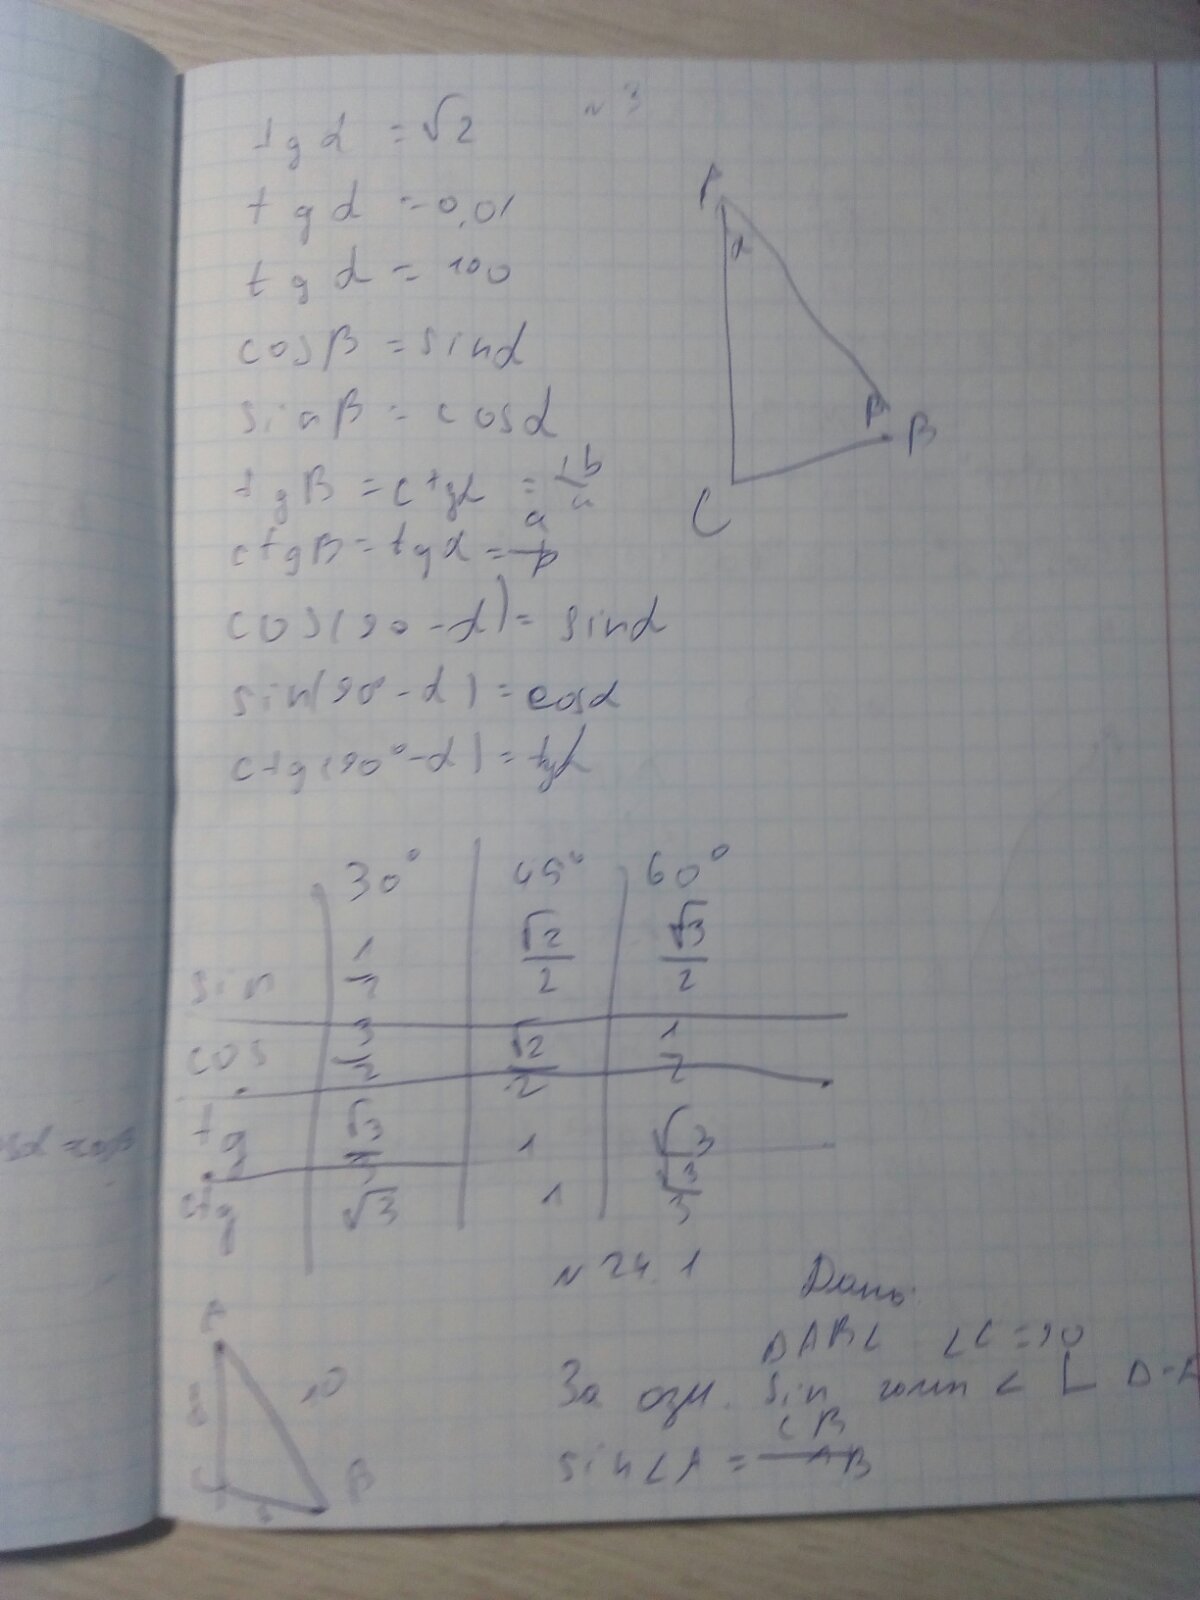 n 3
tg α = √2
tg α = 0,01
tg α = 100
cos β = sin α
sin β = cos α
tg β = ctg α = b/a
ctg β = tg α = a/b
cos(90 - α) = sin α
sin(90° - α) = cos α
ctg(90° - α) = tg α
A
α
β
B
C
30° 45° 60°
sin 1/2 √2/2 √3/2
cos √3/2 √2/2 1/2
tg √3/3 1 √3
ctg √3 1 √3/3
n 24.1
Дано:
ΔABC ∠C = 90
За озн. sin
sin∠A = CB/AB
A
10
8
C
B
6